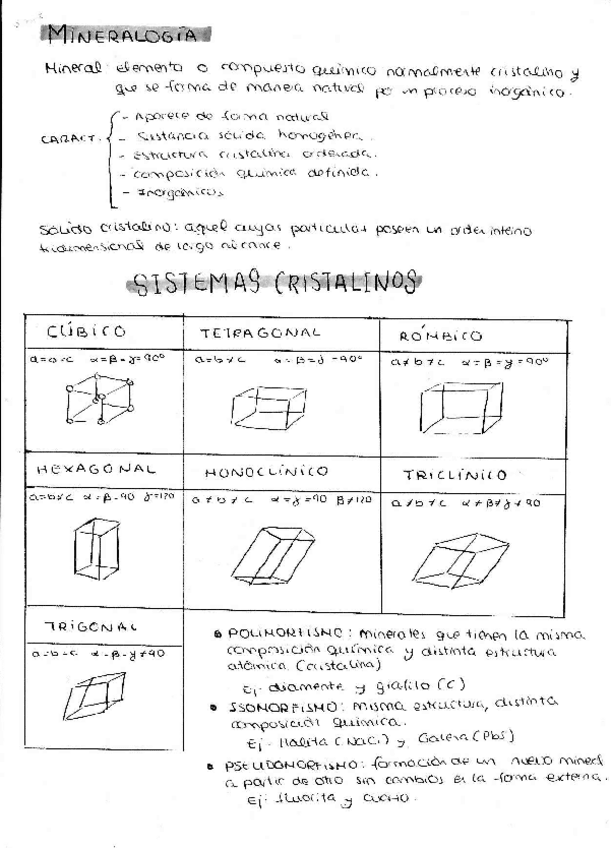 MINERALOGÍA
Mineral: elemento o compuesto químico normalmente cristalino y
que se forma de manera natural por un proceso inorgánico.
CARACT.
- Aparece de forma natural
- Sustancia sólida homogénea.
- Estructura cristalina ordenada.
- composición química definida.
- Inorgánicos
Sólido cristalino: aquel cuyas partículas poseen un orden interno
tridimensional de largo alcance.
SISTEMAS CRISTALINOS
CÚBICO TETRAGONAL RÓMBICO
a=b=c α=β=γ=90º a=b≠c α=β=γ=90º a≠b≠c α=β=γ=90º
HEXAGONAL MONOCLÍNICO TRICLÍNICO
a=b≠c α=β=90 γ=120 a≠b≠c α=γ=90 β≠120 a≠b≠c α≠β≠γ≠90
TRIGONAL
a=b=c α=β=γ≠90
• POLIMORFISMO: minerales que tienen la misma
composición química y distinta estructura
atómica (cristalina)
Ej: diamante y grafito (C)
• ISOMORFISMO: misma estructura, distinta
composición química.
Ej: Halita (NaCl) y Galena (PbS)
• PSEUDOMORFISMO: formación de un nuevo mineral
a partir de otro sin cambios en la forma externa.
Ej: fluorita y cuarzo.